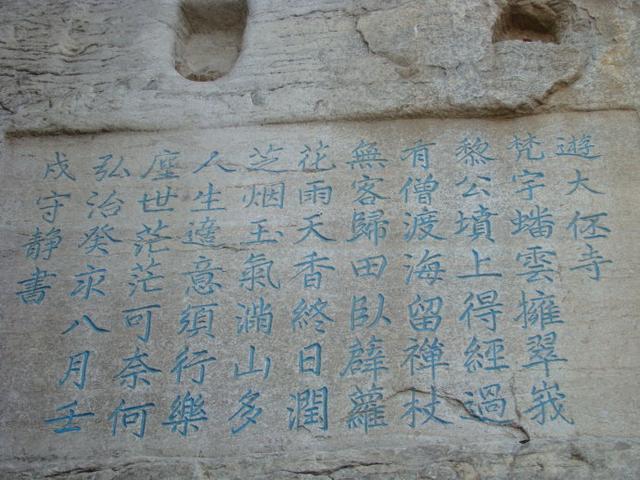 遊大伾寺
梵宇蟠雲擁翠峩
黎公墳上得經過
有僧渡海留禪杖
無客歸田臥薜蘿
花雨天香終日潤
芝烟玉氣滿山多
人生適意須行樂
塵世茫茫可奈何
弘治癸亥八月壬
戌守静書